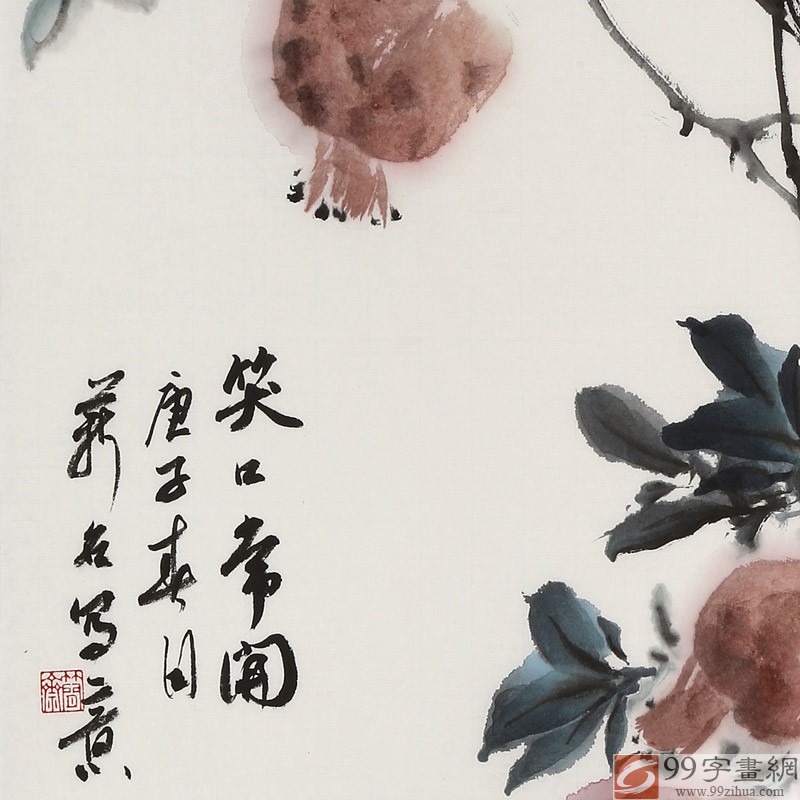 笑口常開
庚子春日
石写意
99字畫網
www.99zihua.com